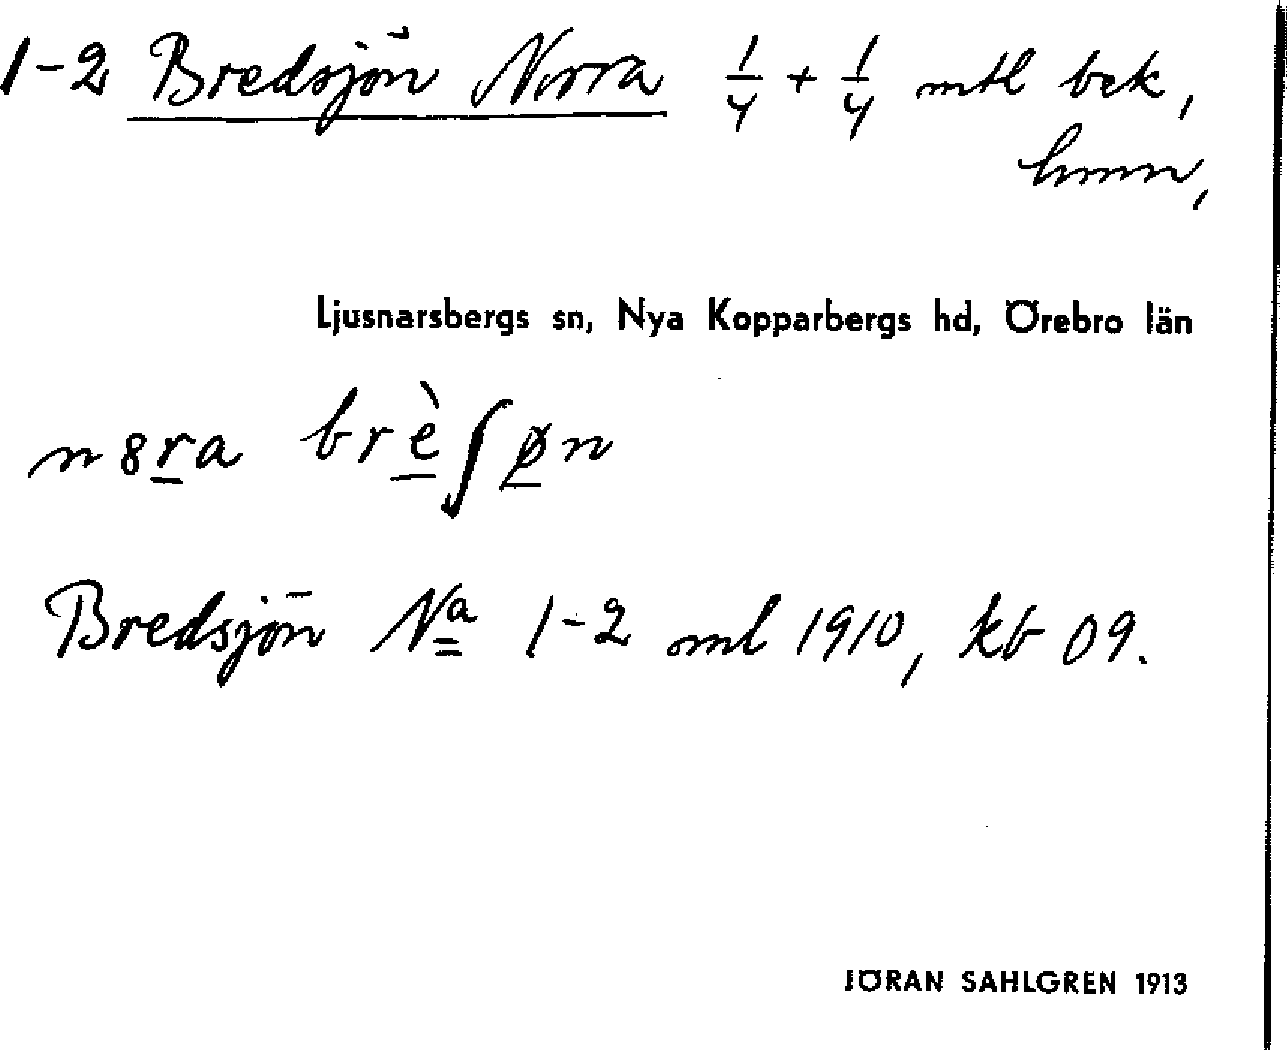 1-2 Bredsjön Norra 1/4 + 1/4 mtl bek,
hmn,
Ljusnarsbergs sn, Nya Kopparbergs hd, Örebro län
n8ra brèʃøn
Bredsjön Na 1-2 ml 1910, kb 09.
JÖRAN SAHLGREN 1913